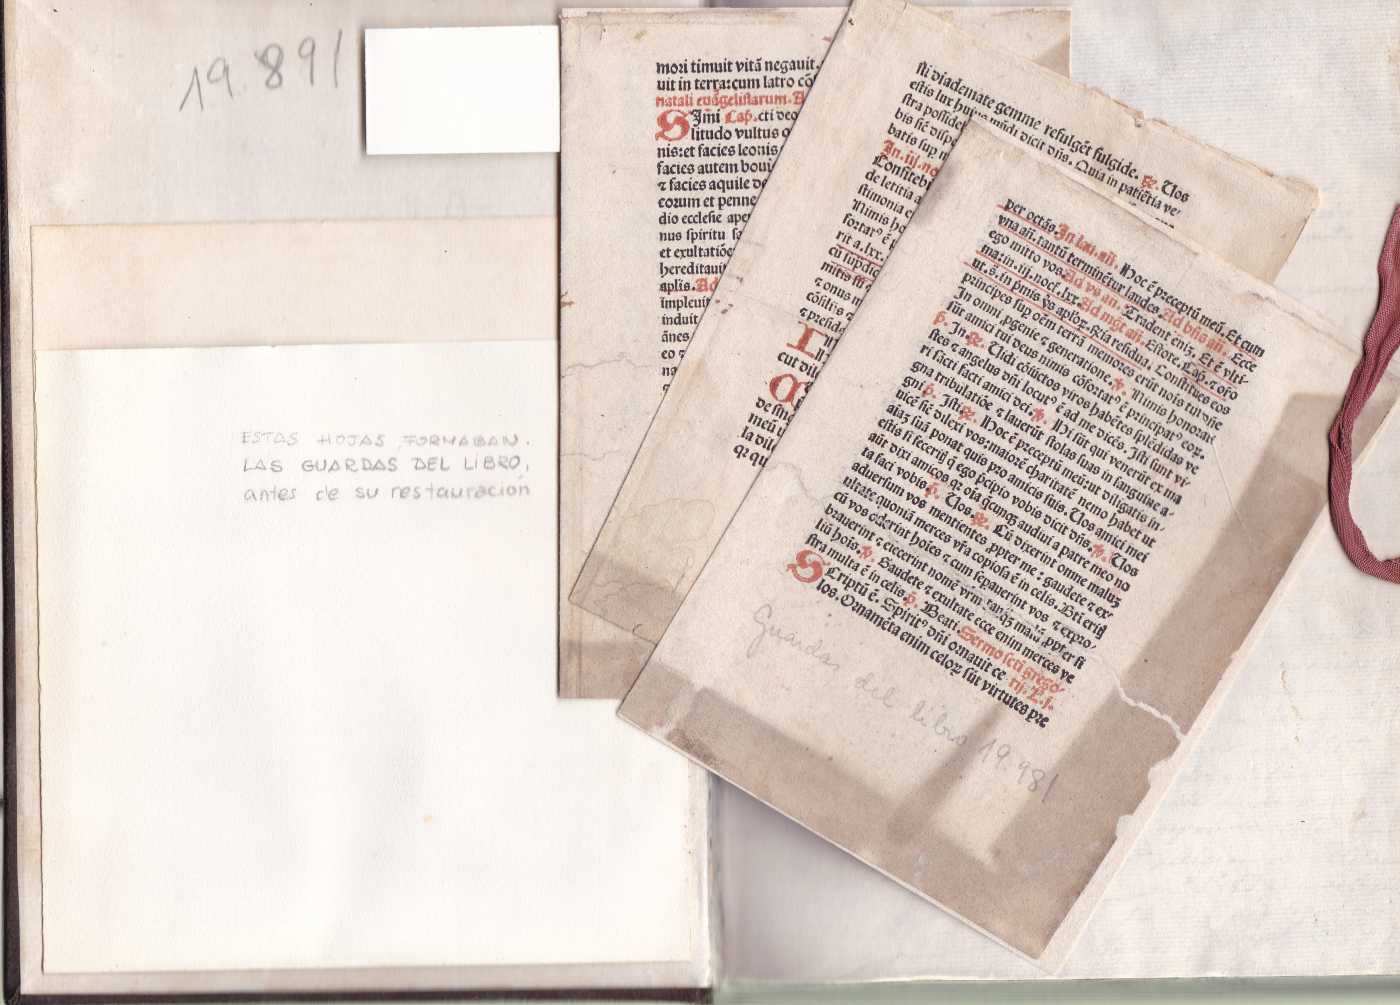 19.891
ESTAS HOJAS FORMABAN.
LAS GUARDAS DEL LIBRO,
antes de su restauración
mori timuit vitā negauit.
uit in terra: cum latro cō
natali euāgelistarum. A
SJm̄i Cap̄. cti deo
litudo vultus
nis: et facies leonis
facies autem boui
⁊ facies aquile de
eorum et penne
dio ecclesie ape
nus spiritu
et exultatiōe
hereditauit
aplis. Ad
impleuit
induit
ānes
eo ⁊
na
sti diademate gemme refulgēt fulgide. ꝶ. Uos
estis lux huius mūdi dicit dn̄s. Quia in patiētia ve
stra posside
bis sic̄ dispo
batis sup m
In. iij. no
Confiteb
de letitia a
stimonia
Nimis ho
fortatꝰ ē p
rit a. lxx.
mitis
⁊ onus m
cōsiliis
⁊ presida
cut dil
meū
la dil
per octās. In lau. añ. Hoc ē preceptū meū. Et cum
vna añ. tantū terminētur laudes. Ad bn̄s añ. Ecce
ego mitto vos. Ad vs̄ an. Tradent eniꝫ. Et ē vlti-
ma: in. iij. noct. lxx. Ad mgt̄ añ. Estote. Cap̄. ⁊ ofo
ut. s. in pmis vs̄ aploꝝ. Ria residua. Constitues eos
principes sup oēm terrā memores erūt nois tui dn̄e
In omni ꝓgenie ⁊ generatione. ℣. Nimis honorati
sūt amici tui deus nimis cōfortatꝰ ē principatꝰ eoꝝ.
p̄. In. ꝶ. Uidi cōiūctos viros habētes splēdidas ve
stes ⁊ angelus dn̄i locutꝰ ē ad me dicēs. Isti sunt vi-
ri sācti facti amici dei. ℣. Hi sūt qui venerūt ex ma
gna tribulatiōe ⁊ lauerūt stolas suas in sanguine a-
gni p̄. Isti. ꝶ. Hoc ē preceptū meū: ut diligatis in-
uicē sic̄ dilexi vos: maiorē charitatē nemo habet ut
aiaꝫ suā ponat quis pro amicis suis. Uos amici mei
estis si feceritꝭ q̄ ego p̄cipio vobis dicit dn̄s. ℣. Uos
aūt dixi amicos qꝛ oīa q̄cunqꝫ audiui a patre meo no
ta feci vobis p̄. Uos. ꝶ. Cū dixerint omne maluꝫ
aduersum vos mentientes ꝓpter me: gaudete ⁊ ex-
ultate quoniā merces vr̄a copiosa ē in celis. Bt̄i eritꝭ
cū vos oderint hoīes ⁊ cum sepauerint vos ⁊ expro-
brauerint ⁊ eiecerint nomē vr̄m tanqꝫ malū ꝓpter fi
liū hois. ℣. Gaudete ⁊ exultate ecce enim merces ve
stra multa ē in celis. p̄. Beati. Sermo scti grego-
SCriptū ē. Spiritꝰ dn̄i ornauit ce rij. L. j.
los. Ornamēta enim celoꝝ sūt virtutes pre
Guardas del libro 19.981